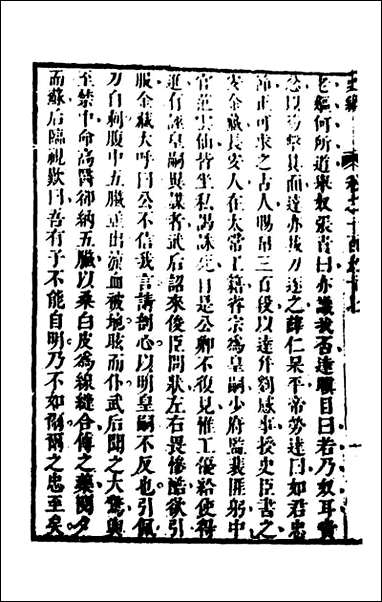 老嫗何所道舉奴張貴曰亦識我否達瞋目曰若乃奴耳貴
忿以笏擊其面達亦拔刀逐之薛仁杲平帝勞達曰如君忠
節正可求之古人賜帛三百段以達并劉感事授史臣書之
安金藏長安人在太常工籍睿宗為皇嗣少府監裴匪躬中
官范雲仙皆坐私謁誅死自是公卿不復見惟工優給使得
進有誣皇嗣異謀者武后詔來俊臣問狀左右畏慘酷欲引
服金藏大呼曰公不信我言請剖心以明皇嗣不反也引佩
刀自刺腹中五臟並出流血被地眩而仆武后聞之大驚輿
至禁中命高醫卻納五臟以桑白皮為線縫合傅之藥閱夕
而蘇后臨視歎曰吾有子不能自明乃不如爾爾之忠至矣